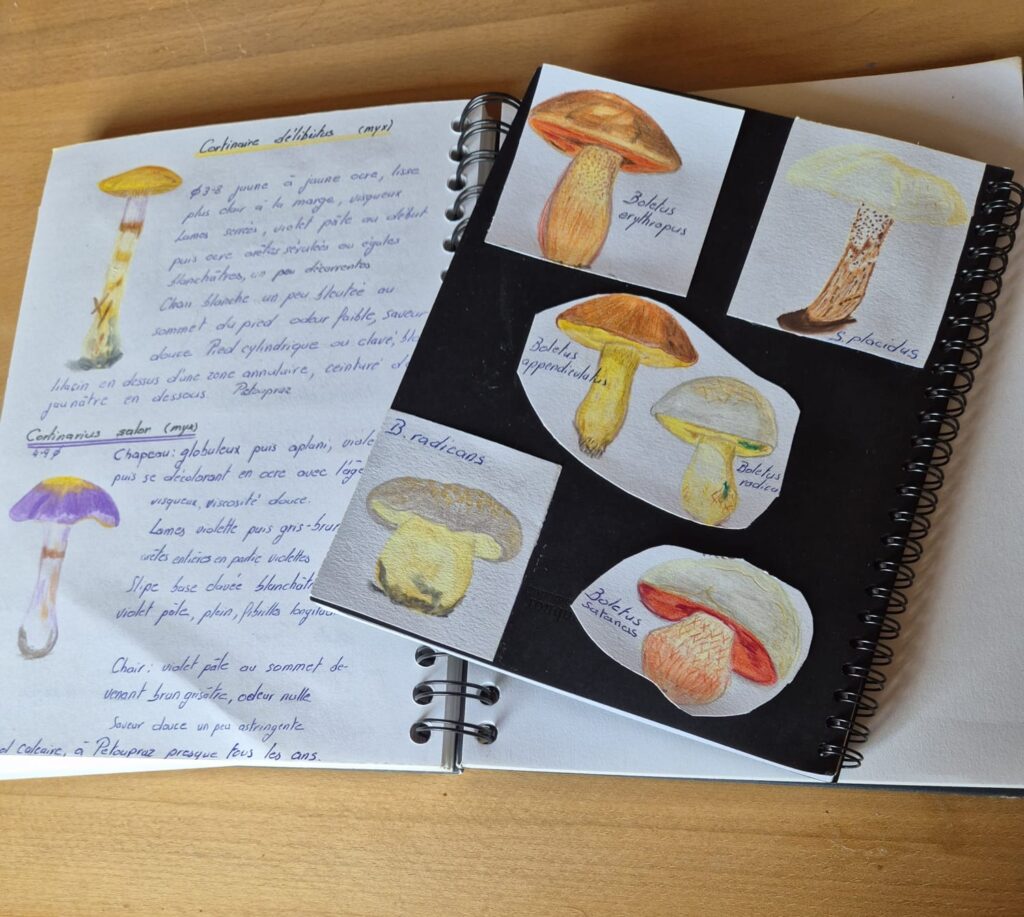 Cortinaire délibutus (myx)
Ø 3-8 jaune à jaune ocre, lisse
plus clair à la marge, visqueux
Lames serrées, violet pâle au début
puis ocre arêtes sérulées ou égales
blanchâtres, un peu décurrentes
Chair blanche un peu bleutée au
sommet du pied odeur faible, saveur
douce. Pied cylindrique ou clavé, bl
lilacin en dessus d'une zone annulaire, ceinturé d
jaunâtre en dessous. Petoupraz
Cortinarius salor (myx)
4-9 Ø
Chapeau: globuleux puis aplani, viole
puis se décolorant en ocre avec l'âge
visqueux, viscosité douce.
Lames violette puis gris-brun
arêtes entières en partie violettes
Stipe base clavée blanchâtr
violet pâle, plein, fibrilles longitud
Chair: violet pâle au sommet de-
venant brun grisâtre, odeur nulle
Saveur douce un peu astringente
ol calcaire, à Petoupraz presque tous les ans.
Boletus
erythropus
S. placidus
Boletus
appendiculatus
Boletus
radica
B. radicans
Boletus
satanas